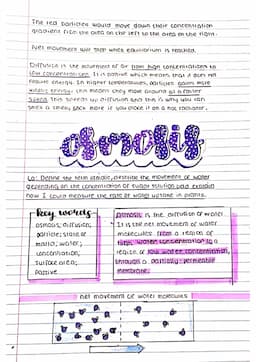 The red particles would move down their concentration
gradient from the area on the left to the area on the right.
Net movement will stop when equilibrium is reached.
Diffusion is the movement of air from high concentration to
low concentration. It is passive which means that it does not
require energy. In higher temperatures, particles gain more
kinetic energy, this means they move around at a faster
speed. This speeds up diffusion and this is why you can
smell a smelly sock more if you place it on a hot radiator.
osmosis
Lo: Define the term osmosis, describe the movement of water
depending on the concentration of sugar solution and explain
how I could measure the rate of water uptake in plants.
Key words
osmosis; diffusion;
particle; state of
matter; water;
concentration;
surface area;
passive
Osmosis is the diffusion of water.
It is the net movement of water
molecules from a region of
high water concentration to a
region of low water concentration,
through a partially-permeable
membrane.
net movement of water molecules